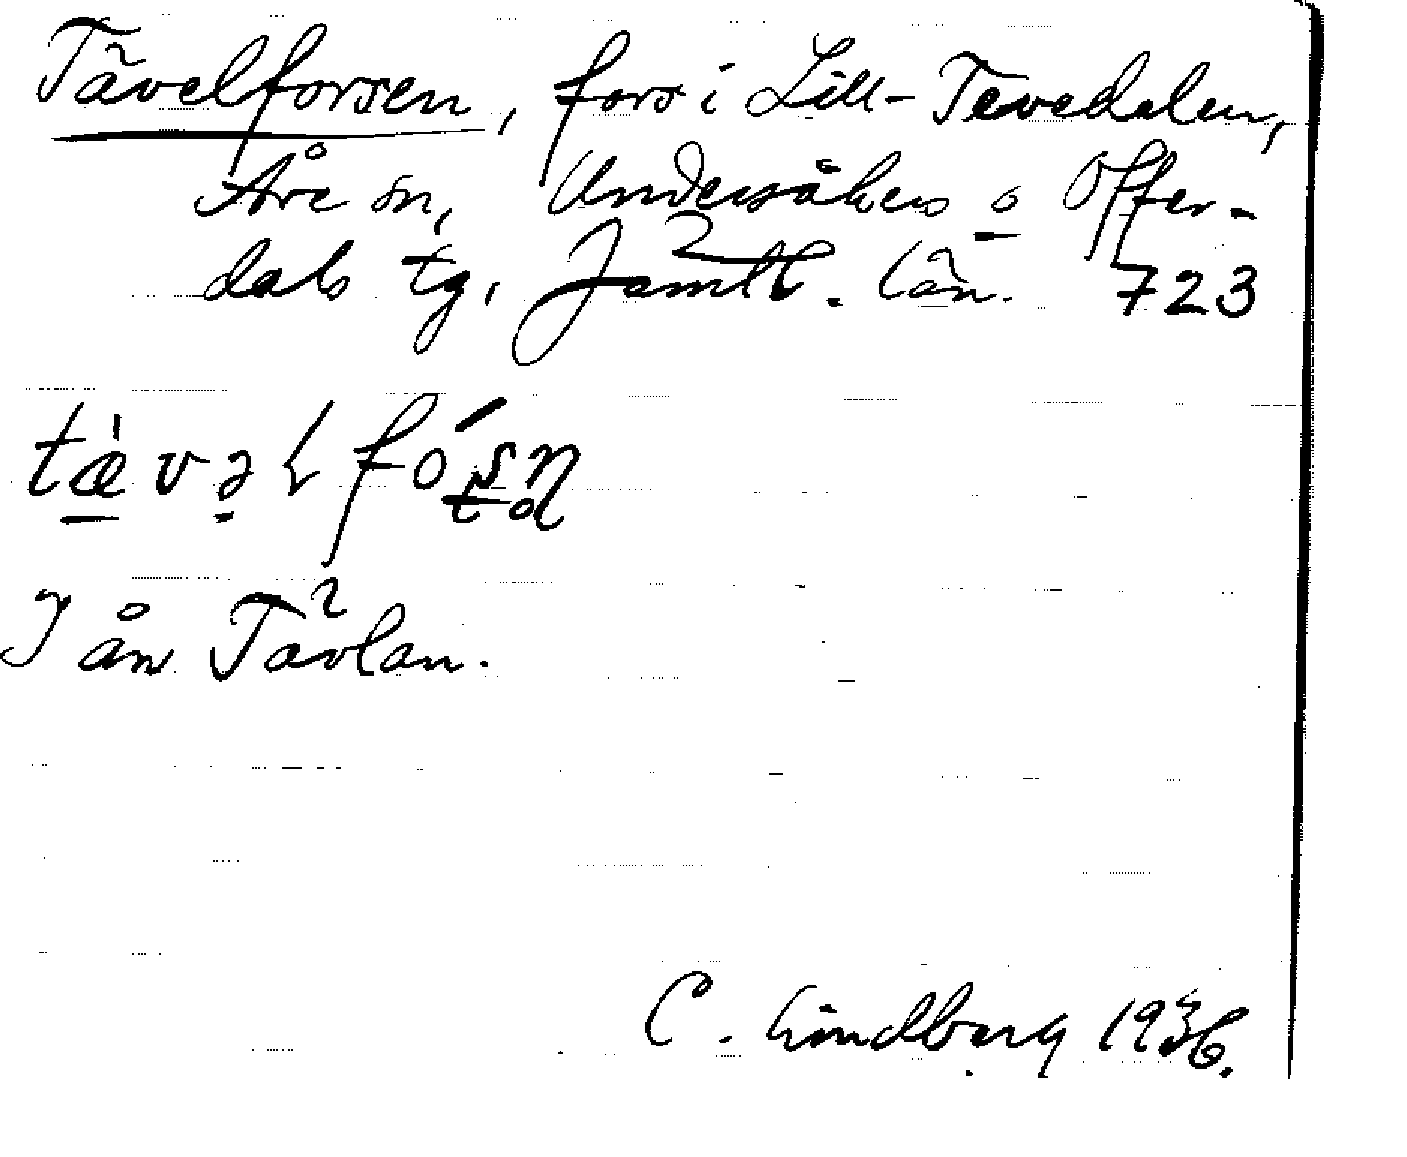 Tävelforsen, fors i Lill-Tevedalen,
Åre sn, Undersåkers o Offer-
dals tg, Jämtl. län. 723
tæ̀vəɫfóʂn̥
I ån Tävlan.
C. Lindberg 1936.